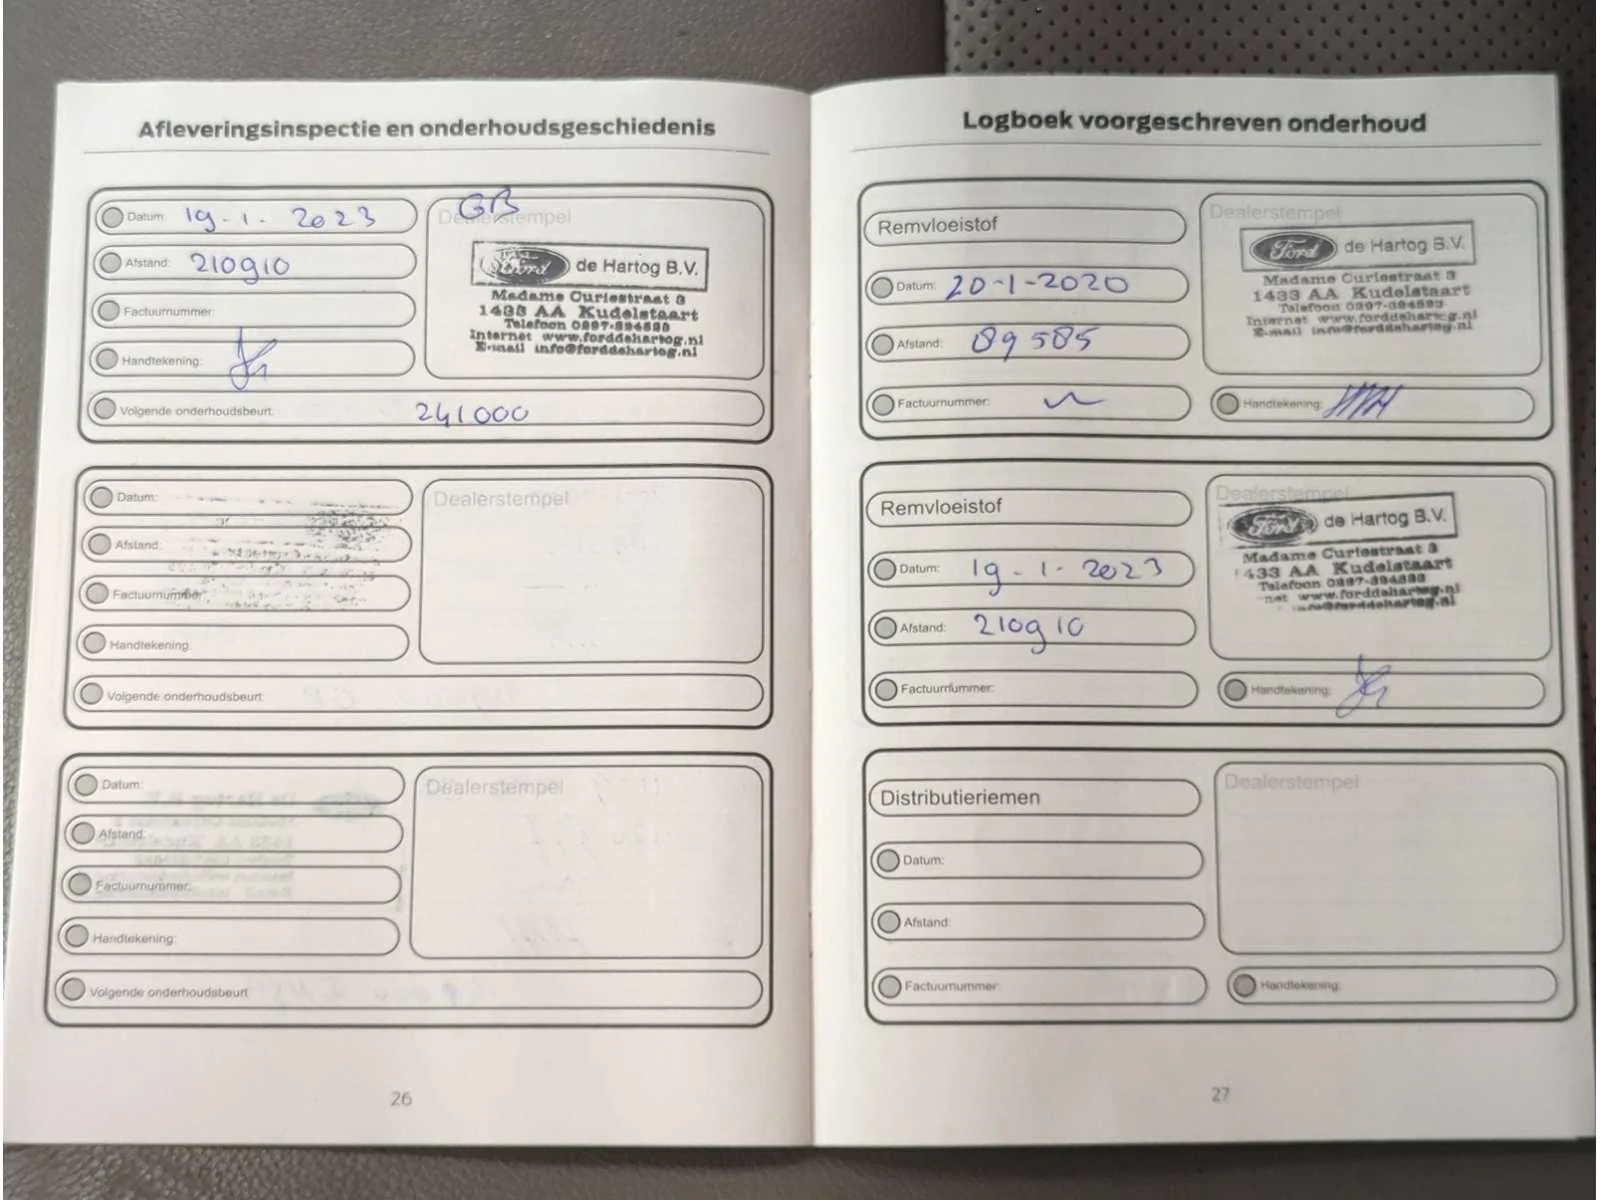 Afleveringsinspectie en onderhoudsgeschiedenis
Datum: 19-1-2023
Afstand: 210910
Factuurnummer:
Handtekening:
Volgende onderhoudsbeurt: 241000
GB
Dealerstempel
Ford de Hartog B.V.
Madame Curiestraat 3
1433 AA Kudelstaart
Telefoon
Internet www.forddehartog.nl
E-mail info@forddehartog.nl
Datum:
Afstand:
Factuurnummer:
Handtekening:
Volgende onderhoudsbeurt:
Dealerstempel
Datum:
Afstand:
Factuurnummer:
Handtekening:
Volgende onderhoudsbeurt
Dealerstempel
26
Logboek voorgeschreven onderhoud
Remvloeistof
Datum: 20-1-2020
Afstand: 89585
Factuurnummer:
Dealerstempel
Ford de Hartog B.V.
Madame Curiestraat 3
1433 AA Kudelstaart
Telefoon
Internet www.forddehartog.nl
E-mail info@forddehartog.nl
Handtekening:
Remvloeistof
Datum: 19-1-2023
Afstand: 210910
Factuurnummer:
Dealerstempel
Ford de Hartog B.V.
Madame Curiestraat 3
1433 AA Kudelstaart
Telefoon
net www.forddehartog.nl
Handtekening:
Distributieriemen
Datum:
Afstand:
Factuurnummer:
Dealerstempel
Handtekening:
27